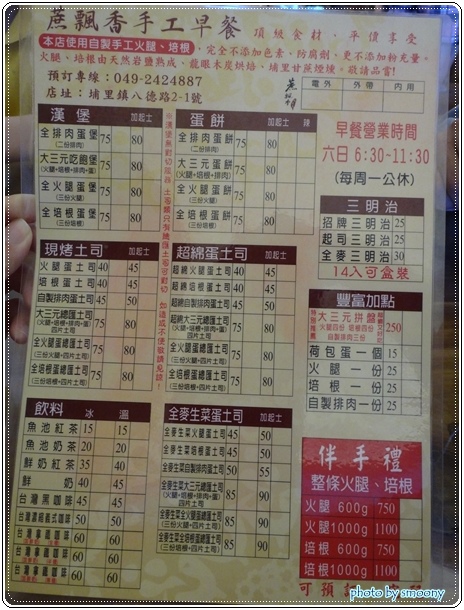 蔗飄香手工早餐
頂級食材、平價享受
本店使用自製手工火腿、培根、完全不添加色素、防腐劑、更不添加粉充量。
火腿、培根由天然岩鹽熟成、龍眼木炭烘焙、埔里甘蔗煙燻、敬請品嘗!
預訂專線：049-2424887
店址：埔里鎮八德路2-1號
電外 外帶 內用
早餐營業時間
六日 6:30-11:30
(每周一公休)
漢堡 加起士
全排肉蛋堡 75 80
(二份排肉)
大三元吃飽堡 75 80
(火腿+培根+排肉+蛋)
全火腿蛋堡 75 80
(三份火腿)
全培根蛋堡 75 80
(三份培根)
蛋餅 加起士 辣
全排肉蛋餅 75 80
(二份排肉)
大三元蛋餅 75 80
(火腿+培根+排肉)
全火腿蛋餅 75 80
(三份火腿)
全培根蛋餅 75 80
(三份培根)
三明治
招牌三明治 25
起司三明治 30
全麥三明治 30
14入可盒裝
現烤土司 加起士
火腿蛋土司 40 45
培根蛋土司 40 45
自製排肉蛋土司 45 50
大三元總匯土司 75 80
(火腿+培根+排肉+蛋)
四片土司
全火腿蛋總匯土司 75 80
(三份火腿+四片土司)
全培根蛋總匯土司 75 80
(三份培根+四片土司)
超綿蛋土司 加起士
超綿火腿蛋土司 40 45
超綿培根蛋土司 40 45
超綿自製排肉蛋土司 45 50
大三元蛋總匯土司 75 80
(火腿+培根+排肉)
四片土司
全火腿蛋總匯土司 75 80
(三份火腿+四片土司)
全培根蛋總匯土司 75 80
(三份培根+四片土司)
如造成不便敬請見諒!
豐富加點
大三元拼盤 250
火腿四份 培根四份
自製排肉三份
荷包蛋一個 15
火腿一份 25
培根一份 25
自製排肉一份 25
飲料 冰 溫
魚池紅茶 15 15
魚池奶茶 20 20
鮮奶紅茶 35 40
鮮奶 40 45
台灣黑咖啡 45 45
台灣濃縮義式咖啡 50 50
台灣拿鐵咖啡 60 60
台灣拿鐵咖啡 60 60
台灣拿鐵咖啡 60 60
全麥生菜蛋土司 加起士
全麥生菜火腿蛋土司 45 50
全麥生菜培根蛋土司 45 50
全麥生菜排肉蛋土司 50 55
全麥生菜大三元蛋總匯 85 90
(火腿+培根+排肉)
四片土司
全麥生菜全火腿蛋總匯土司 85 90
(三份火腿+四片土司)
全麥生菜全培根蛋總匯土司 85 90
(三份培根+四片土司)
伴手禮
整條火腿、培根
火腿 600g 750
火腿 1000g 1100
培根 600g 750
培根 1000g 1100
可預訂
photo by smoony